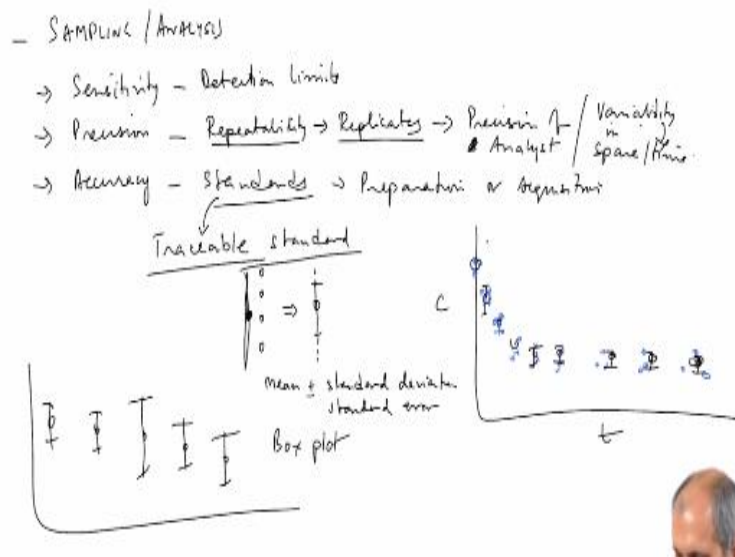 - SAMPLING / ANALYSIS
→ Sensitivity - Detection limits
→ Precision - Repeatability → Replicates → Precision of Analyst / Variability in space/time
→ Accuracy - Standards → Preparation or
Traceable standard
⇒
mean ± standard deviation
standard error
Box plot
C
t